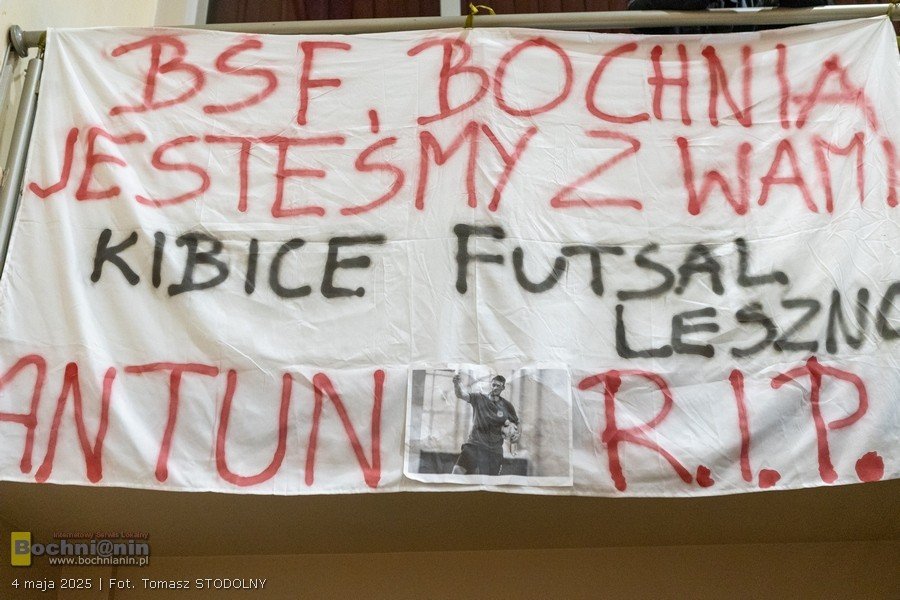 BSF, BOCHNIA
JESTEŚMY Z WAMI
KIBICE FUTSAL
LESZNO
ANTUN R.I.P.
Internetowy Serwis Lokalny
Bochni@nin
www.bochnianin.pl
4 maja 2025 | Fot. Tomasz STODOLNY